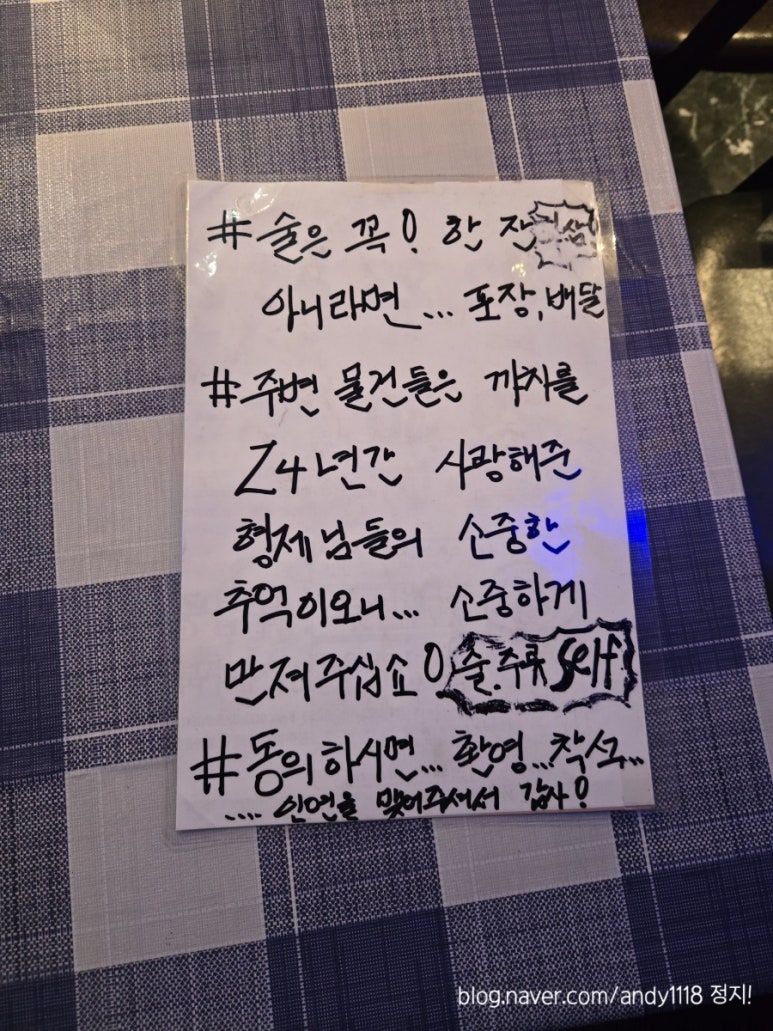 # 술은 꼭! 한 잔
아니라면... 포장, 배달
# 주변 물건들은 까치를
24년간 사랑해준
형제님들의 소중한
추억이오니... 소중하게
만져주십쇼! 술.주류 self
# 동의하시면... 환영.. 착석...
.... 인연을 맺어주셔서 감사!
blog.naver.com/andy1118 정지!